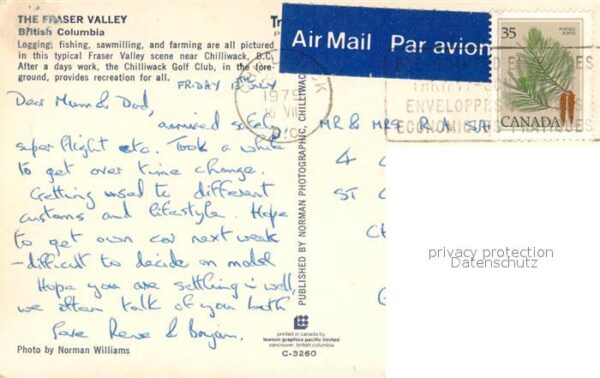 THE FRASER VALLEY
British Columbia
Logging, fishing, sawmilling, and farming are all pictured
in this typical Fraser Valley scene near Chilliwack, B.C.
After a days work, the Chilliwack Golf Club, in the fore-
ground, provides recreation for all.
FRIDAY 13th JULY
Dear Mum & Dad,
arrived safely
super flight etc. Took a while
to get over time change.
Getting used to different
customs and lifestyle. Hope
to get own car next week
- difficult to decide on model
Hope you are settling in well,
we often talk of you both
Love Rene & Bryan.
Photo by Norman Williams
PUBLISHED BY NORMAN PHOTOGRAPHIC, CHILLIWACK
printed in canada by
lawson graphics pacific limited
vancouver, british columbia
C-3260
Air Mail Par avion
1979
VII
ENVELOPPES
ECONOMIQUES PRATIQUES
35
CANADA
MR & MRS R A
4
ST
privacy protection
Datenschutz